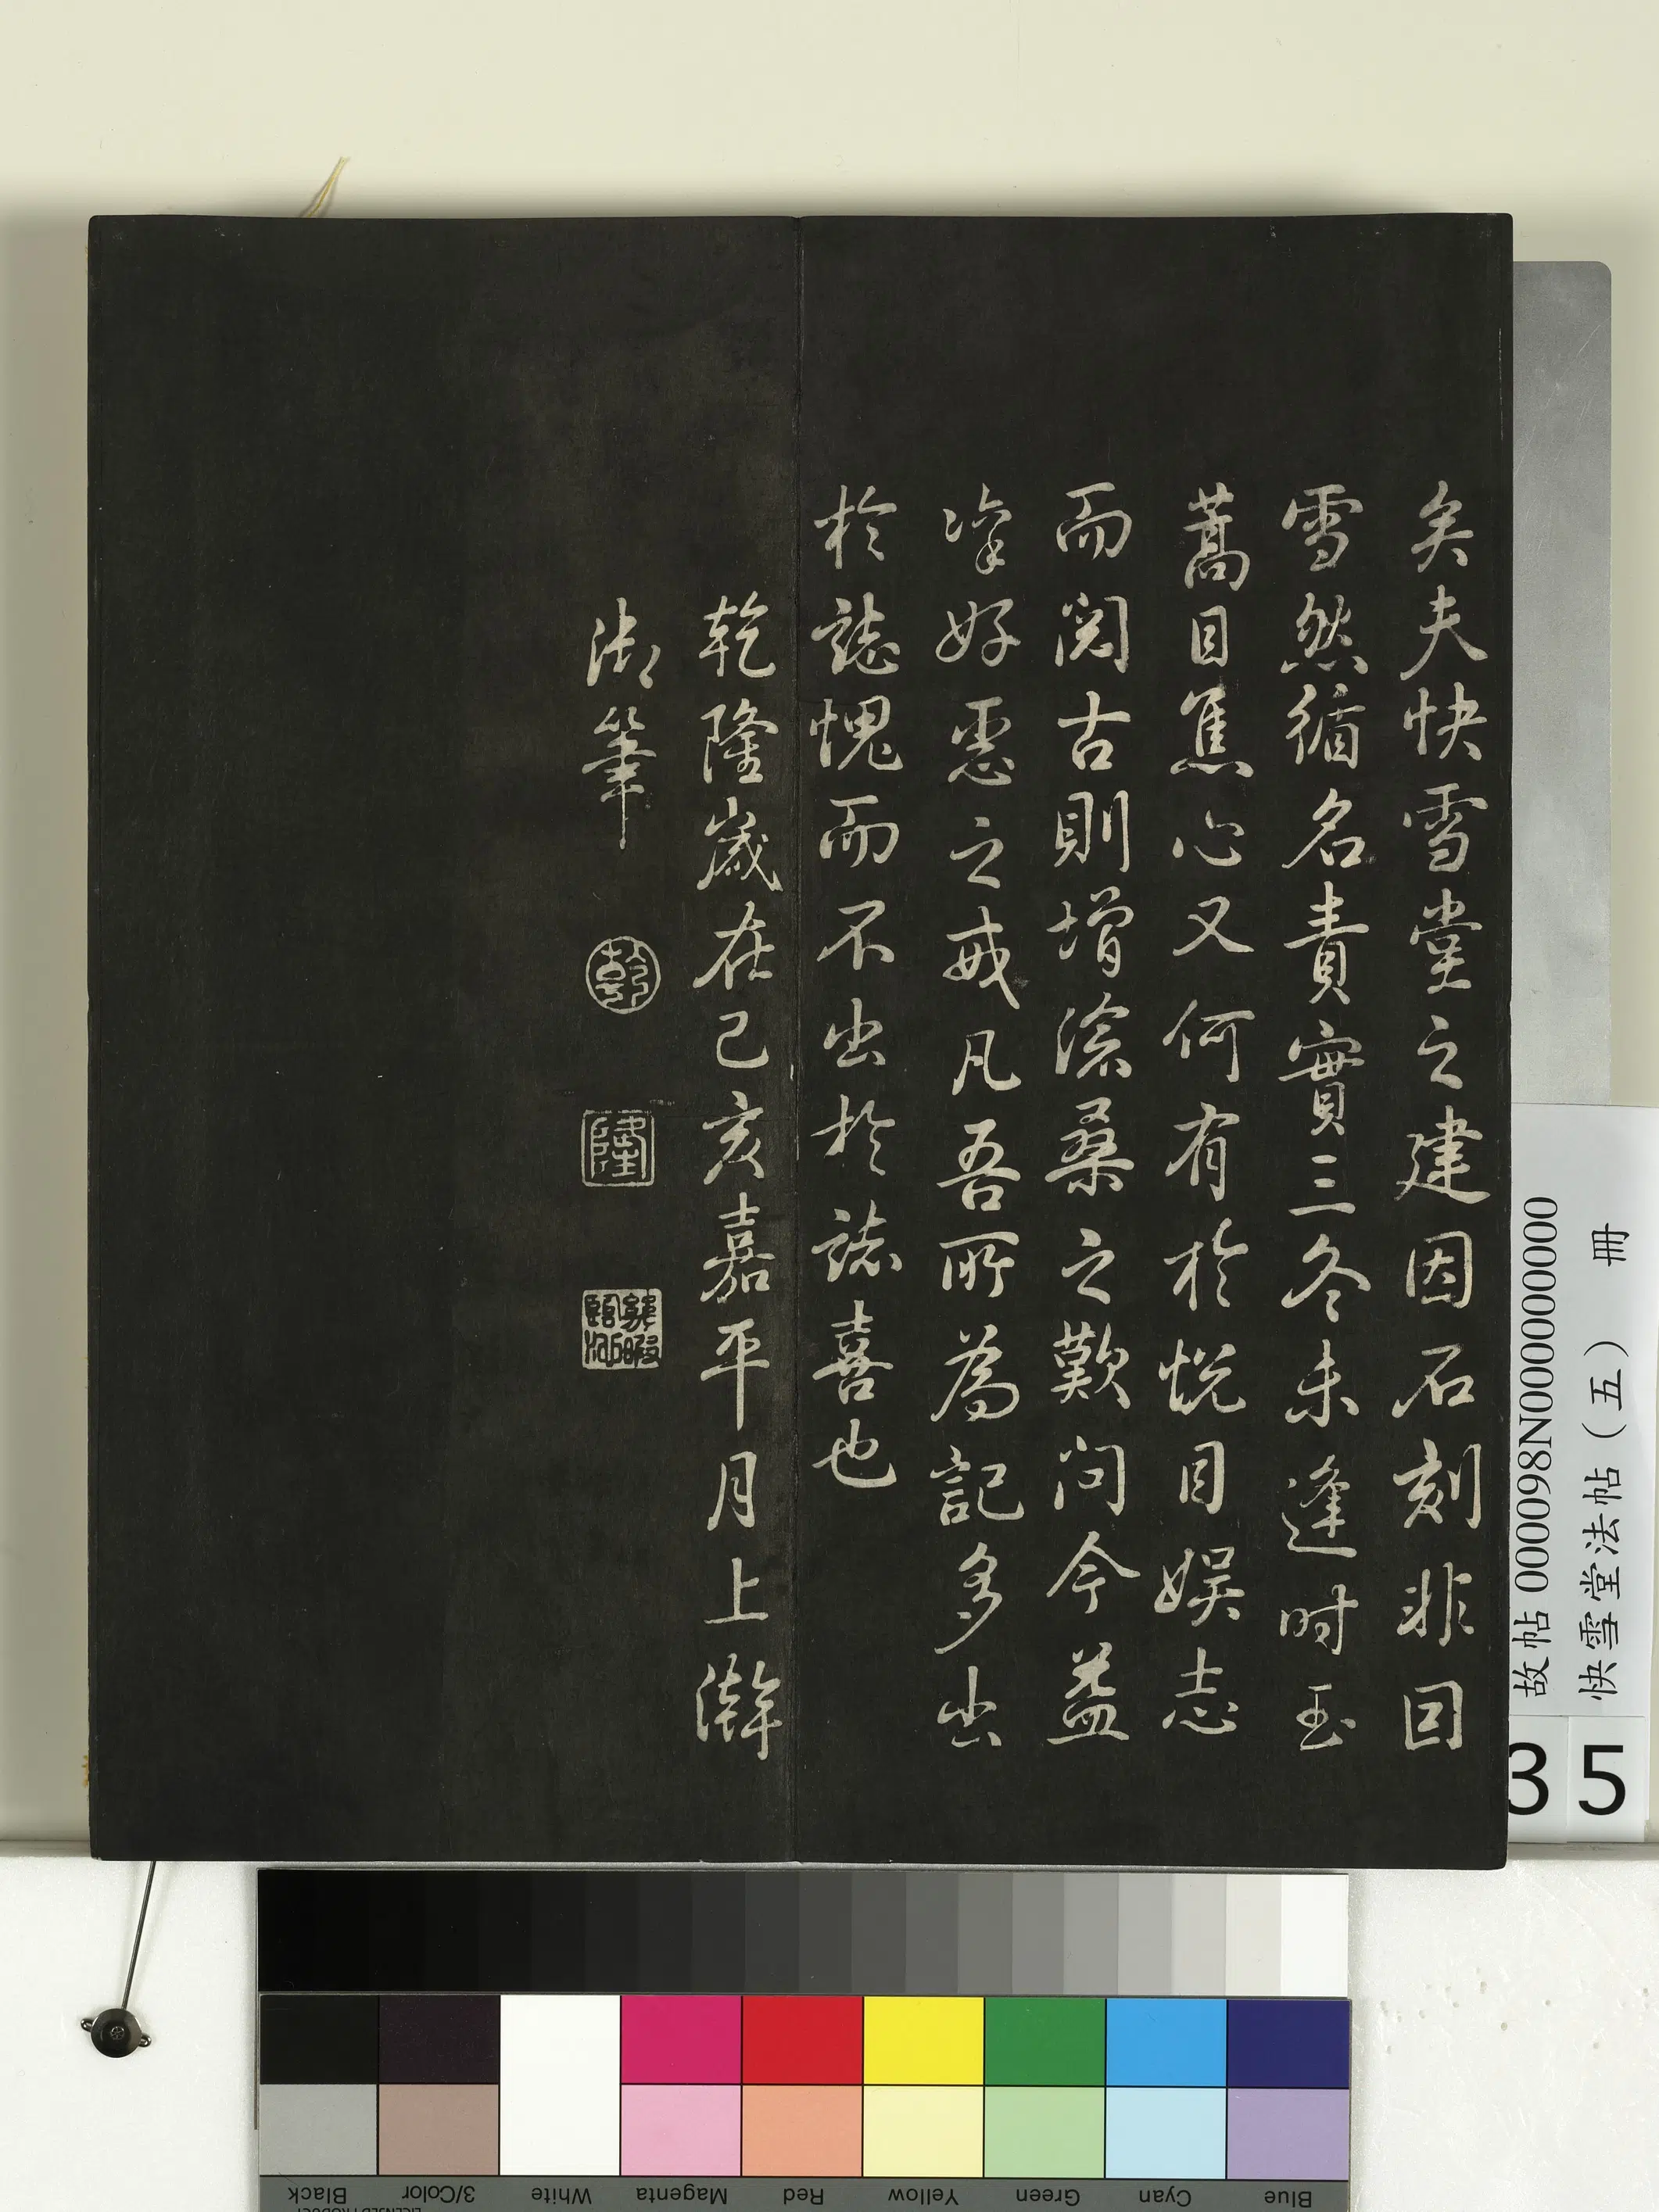 矣夫快雪堂之建因石刻非因
雪然循名責實三冬未逢時玉
蒿目焦心又何有於悅目娛志
而閱古則增滄桑之歎問今益
凜好惡之戒凡吾所為記多出
於誌愧而不出於誌喜也
乾隆歲在己亥嘉平月上澣
御筆
乾
隆
幾暇
臨池
故帖 000098N000000000
快雪堂法帖（五） 冊
35
Black
3/Color
White
Magenta
Red
Yellow
Green
Cyan
Blue
LICENSED PRODUCT